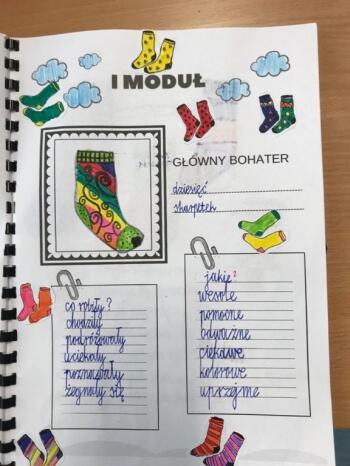 I MODUŁ
GŁÓWNY BOHATER
dziesięć
skarpetek
co robiły?
chodziły
podróżowały
uciekały
poznawały
żegnały się
jakie?
wesołe
pomocne
odważne
ciekawe
kolorowe
uprzejme